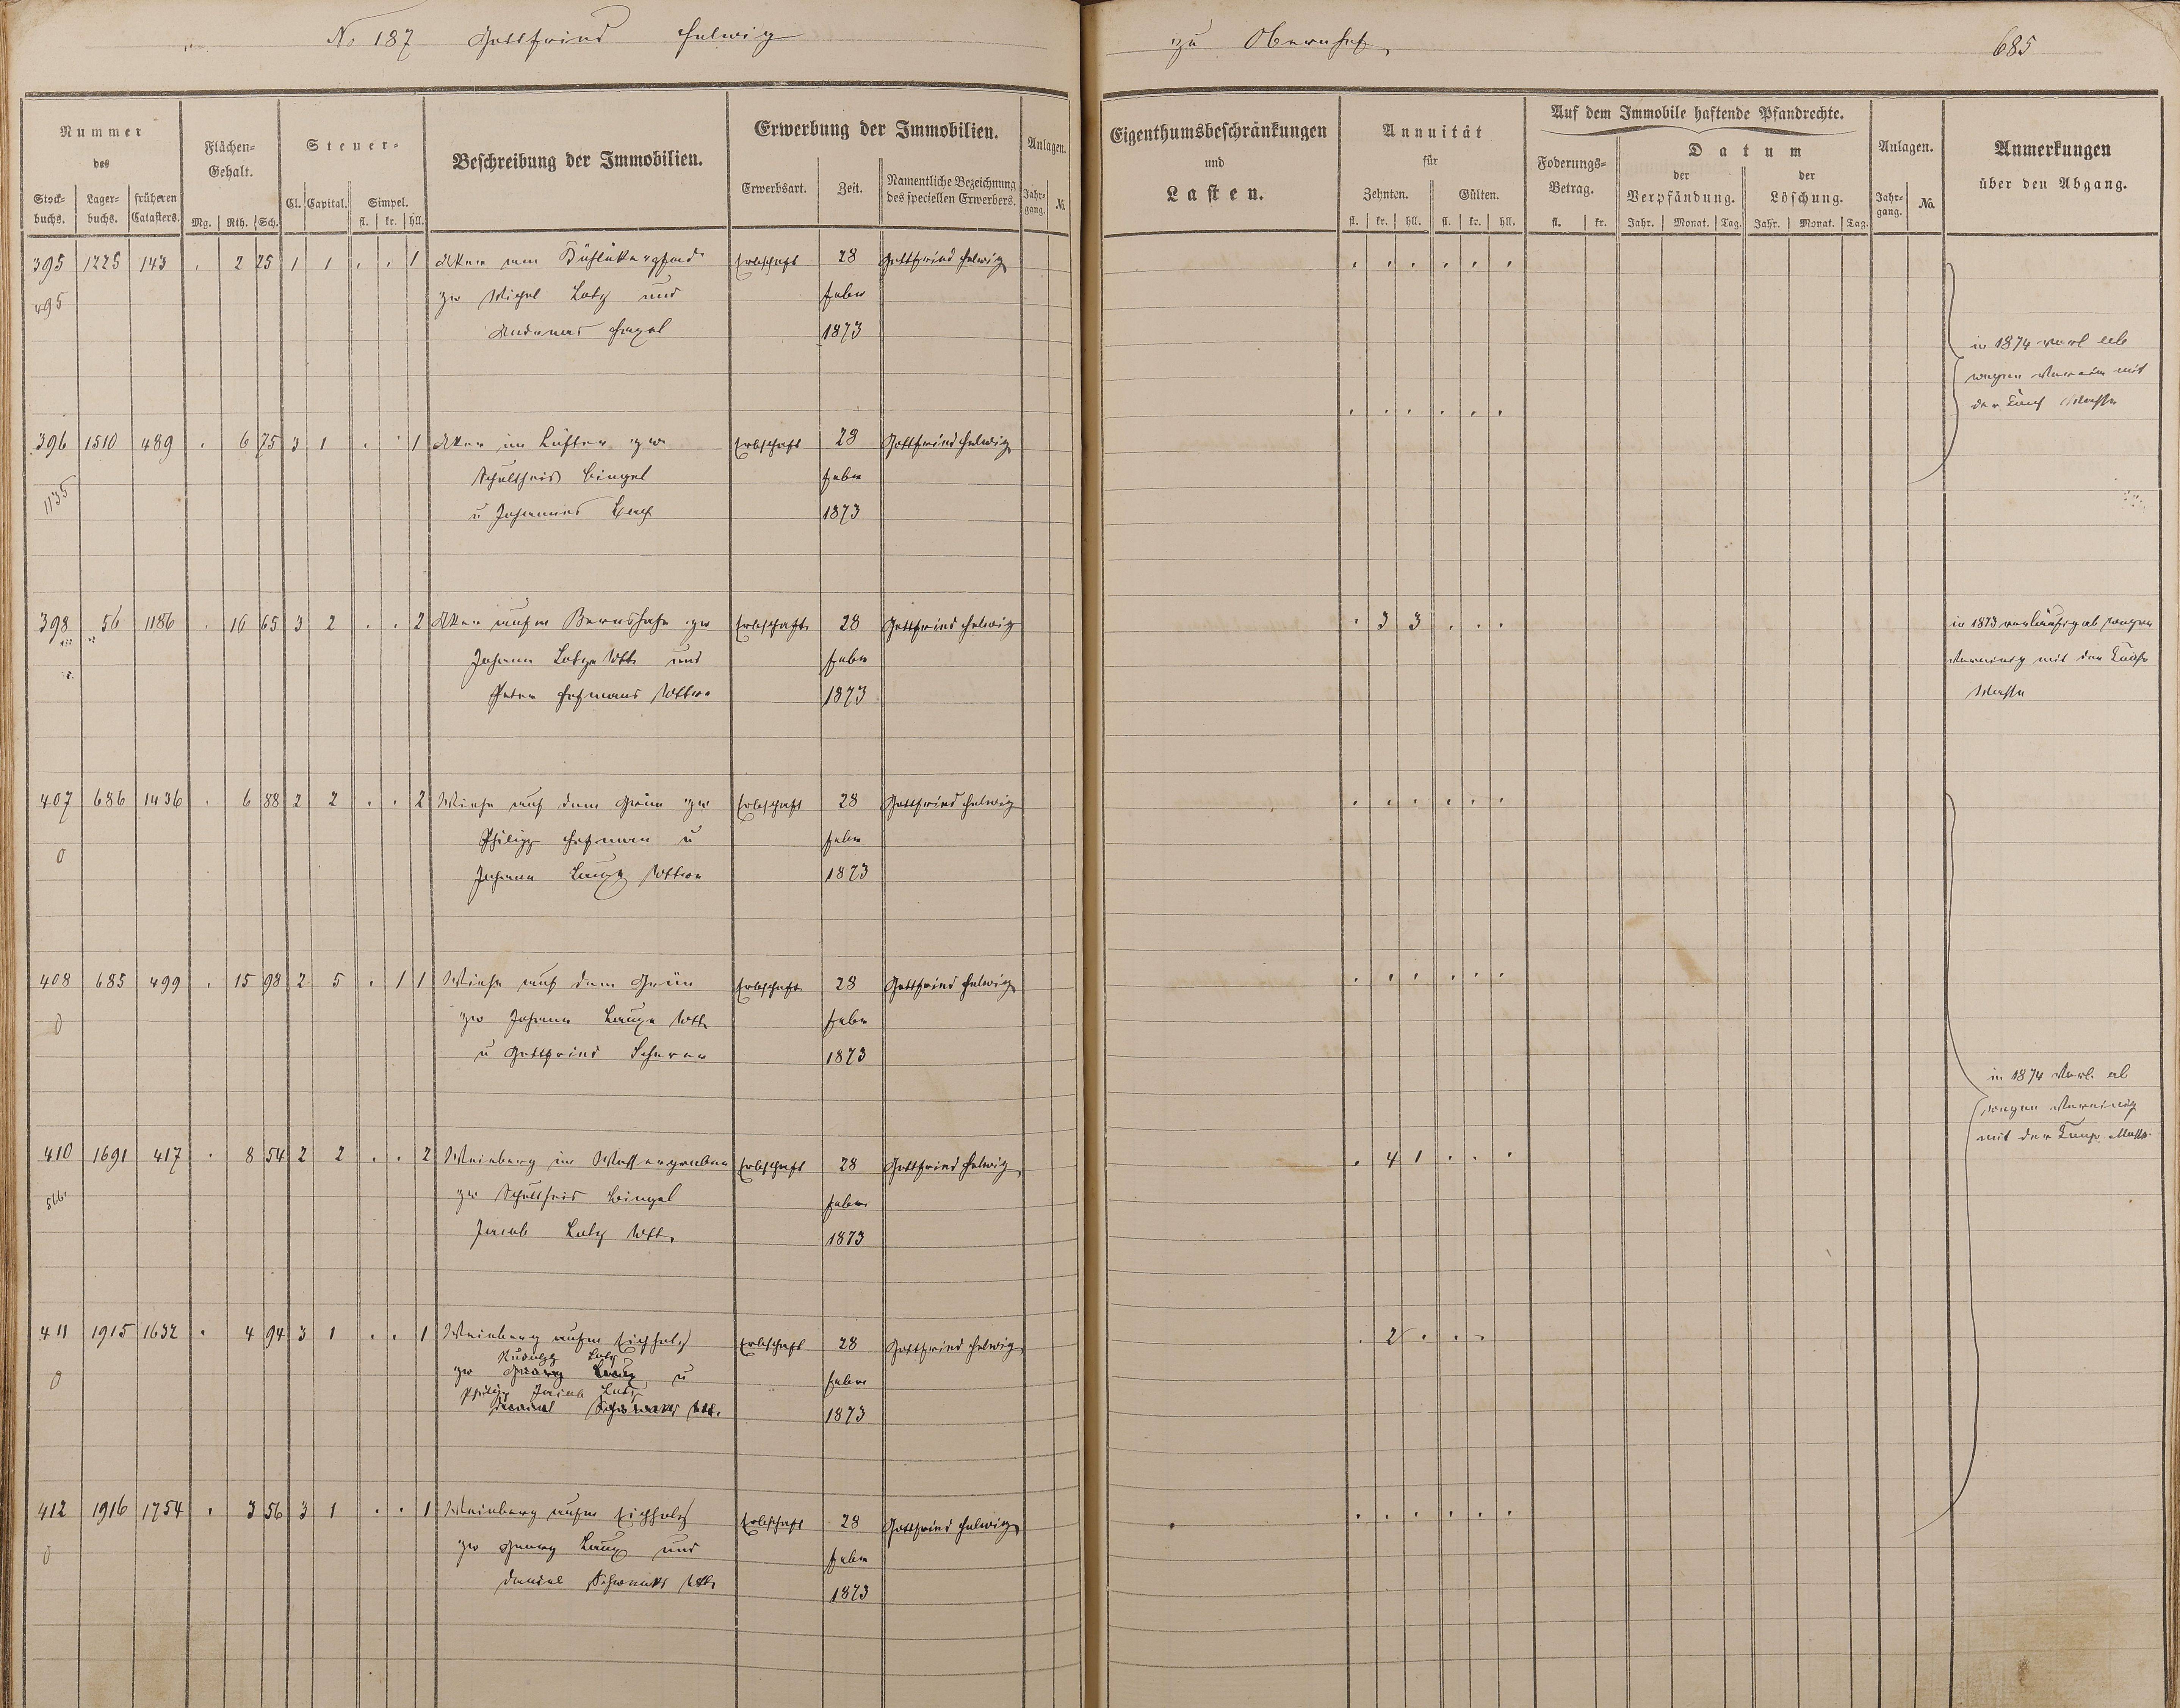 No 187 Gottfried Helwig zu Obernhof 685
Nummer des
Stock-buchs. Lager-buchs. früheren Catasters.
Flächen-Gehalt.
Mg. Rth. Sch.
Steuer-
Cl. Capital. Simpel.
fl. kr. hll.
Beschreibung der Immobilien.
Erwerbung der Immobilien.
Erwerbsart. Zeit. Namentliche Bezeichnung des speciellen Erwerbers.
Anlagen.
Jahr-gang. No.
Eigenthumsbeschränkungen und Lasten.
Annuität für
Zehnten. Gülten.
fl. kr. hll. fl. kr. hll.
Auf dem Immobile haftende Pfandrechte.
Foderungs-Betrag.
fl. kr.
Datum
der Verpfändung. der Löschung.
Jahr. Monat. Tag. Jahr. Monat. Tag.
Anlagen.
Jahr-gang. No.
Anmerkungen über den Abgang.
395 1225 143 . 2 25 1 1 . . 1 Acker am zw Erbschaft 28 Gottfried Helwig . . . . . .
495 zw Michel Lotz und Febr
Andreas 1873
in 1874 vorl ab
wegen Verein mit
der Masse
396 1510 489 . 6 75 3 1 . . 1 Acker im zw Erbschaft 28 Gottfried Helwig . . . . . .
1135 Schultheis Bingel Febr
u Johannes 1873
398 56 1186 . 16 65 3 2 . . 2 Acker aufm zw Erbschaft 28 Gottfried Helwig . 3 3 . . . in 1873 vorläufig ab wegen
Johann Lotze Wtb und Febr Vereinig mit der
Peter Hofmans Wittwe 1873 Masse
407 686 1436 . 6 88 2 2 . . 2 Wiese auf dem Grün zw Erbschaft 28 Gottfried Helwig . . . . . .
0 Philipp Hofman u Febr
Johann Wittwe 1873
408 685 499 . 15 98 2 5 . 1 1 Wiese auf dem Grün Erbschaft 28 Gottfried Helwig . . . . . .
0 zw Johann Wtb Febr
u Gottfried Scherer 1873
in 1874 Vorl. ab
wegen Vereinig
mit der Masse
410 1691 417 . 8 54 2 2 . . 2 Weinberg im Wassergraben Erbschaft 28 Gottfried Helwig . 4 1 . . .
566 zw Schultheis Bingel Febr
Jacob Lotz Wtb 1873
411 1915 1632 . 4 94 3 1 . . 1 Weinberg aufm Eichholz Erbschaft 28 Gottfried Helwig . 2 . . .
Rudolph Lotz
0 zw Georg u Febr
Philipp Jacob Lotz
Daniel Wtb. 1873
412 1916 1754 . 3 56 3 1 . . 1 Weinberg aufm Eichholz Erbschaft 28 Gottfried Helwig . . . . . .
0 zw Georg und Febr
Daniel Wtb 1873